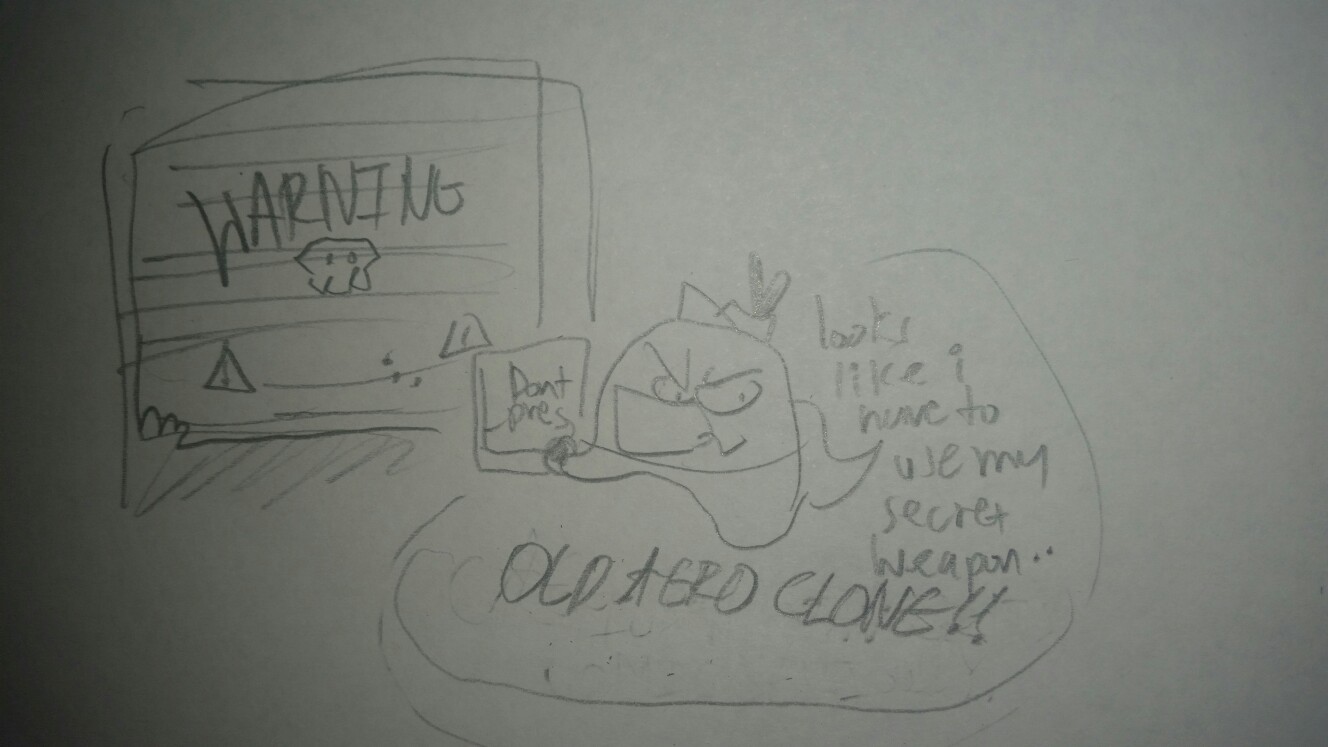 WARNING
Dont
pres
looks
like i
have to
use my
secret
weapon..
OLD AERO CLONE!!